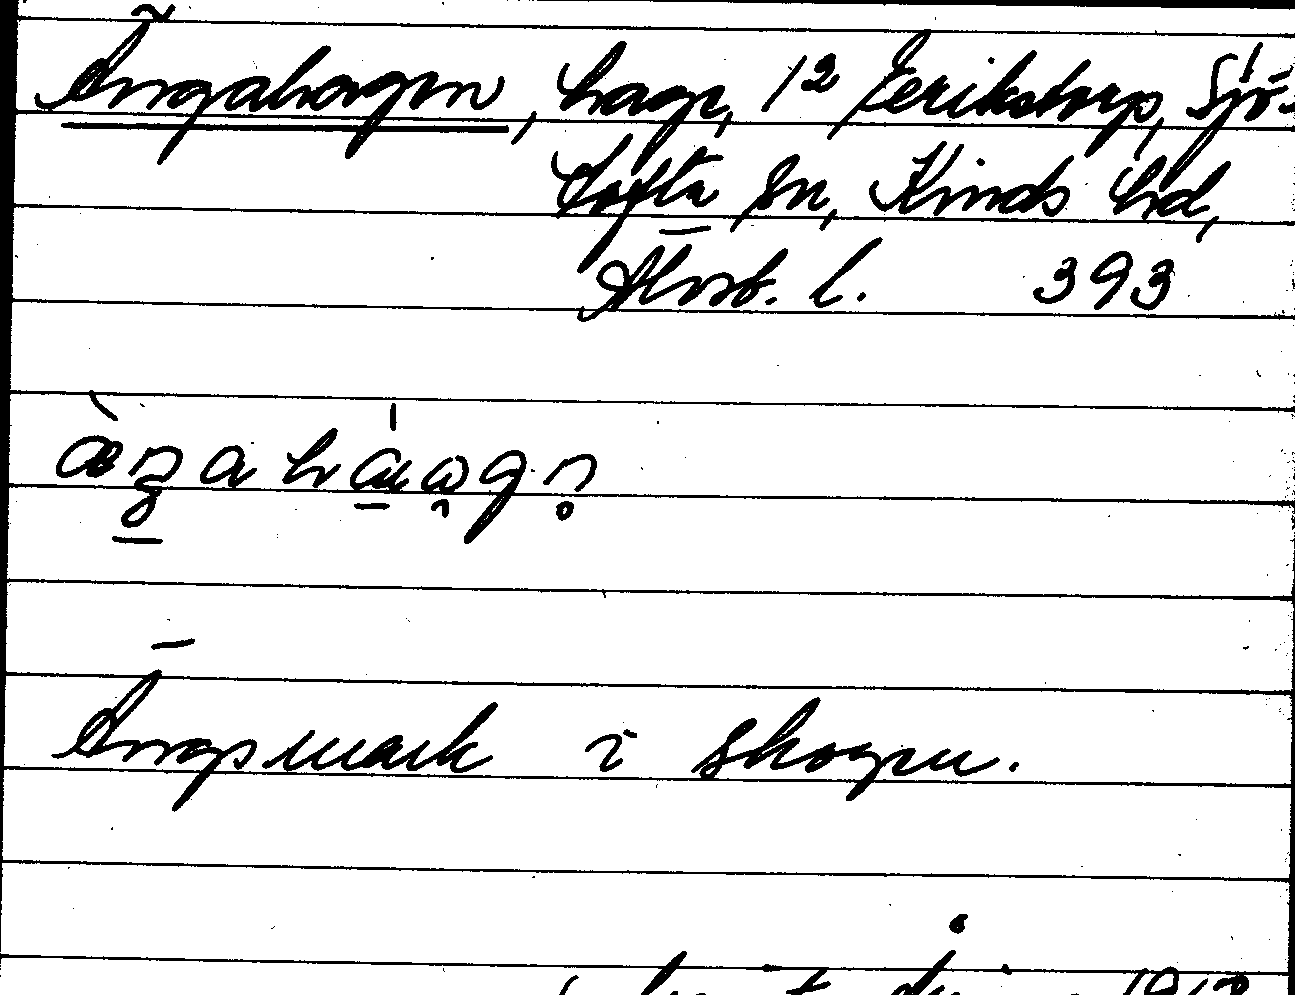 Ängahagen, hage, 1² Eerikstorp, Sjö-
tofta sn, Kinds hd,
Älvsb. l. 393
Ängsmark i skogen.